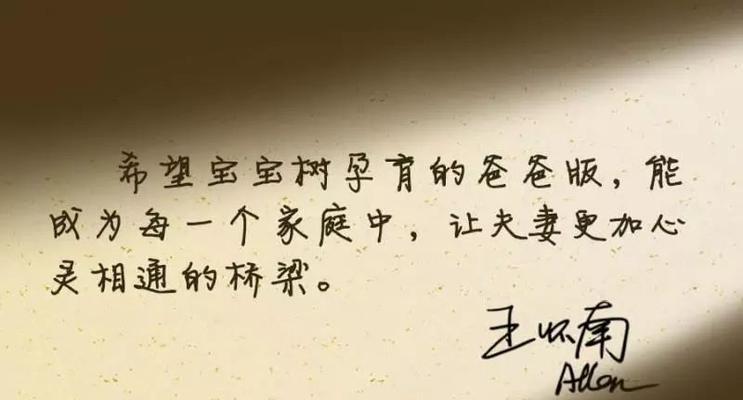 希望宝宝树孕育的爸爸版，能
成为每一个家庭中，让夫妻更加心
灵相通的桥梁。
王怀南
Allen